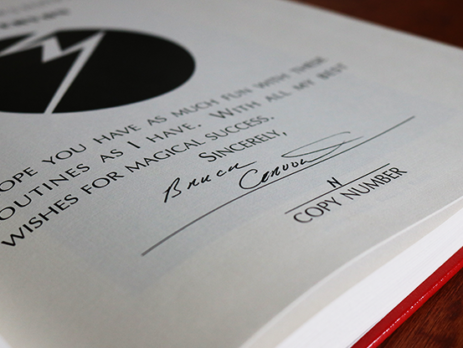 OPE YOU HAVE AS MUCH FUN WITH THESE
OUTINES AS I HAVE. WITH ALL MY BEST
WISHES FOR MAGICAL SUCCESS.
SINCERELY,
Bruce Cervon
N
COPY NUMBER